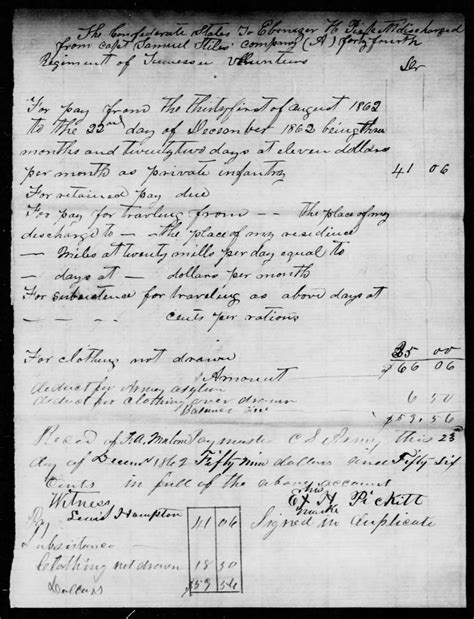 The Confederate States To Ebenezer H Pickett discharged
from capt Samuel Stiles company (A) forty fourth
Regiment of Tennessee Volunteers
Dr
For pay from the thirty first of august 1862
to the 22nd day of December 1862 being thre
months and twenty two days at eleven dollars
per month as private infantry 41 06
For retained pay due
For pay for travling from - - the place of my
discharge to - - the place of my residince
- miles at twenty mills per day equal to
- days at - dollars per month
For subsistence for traveling as above days at
- - - - cents per rations
For clothing not drawn 25 00
Amount $66 06
deduct for Army asylum
deduct for clothing over drawn 6 50
Balance due $59.56
Recd of F.A. Paymaster C S Army this 23d
day of Decem 1862 Fifty Nine dollars and Fifty Six
Cents in full of the above account
Witness
his
Ex H Pickett
mark
Lewis Hampton
Signed in duplicate
Pay 41 06
Subsistance
Clothing not drawn 18 50
Dollars $59 56